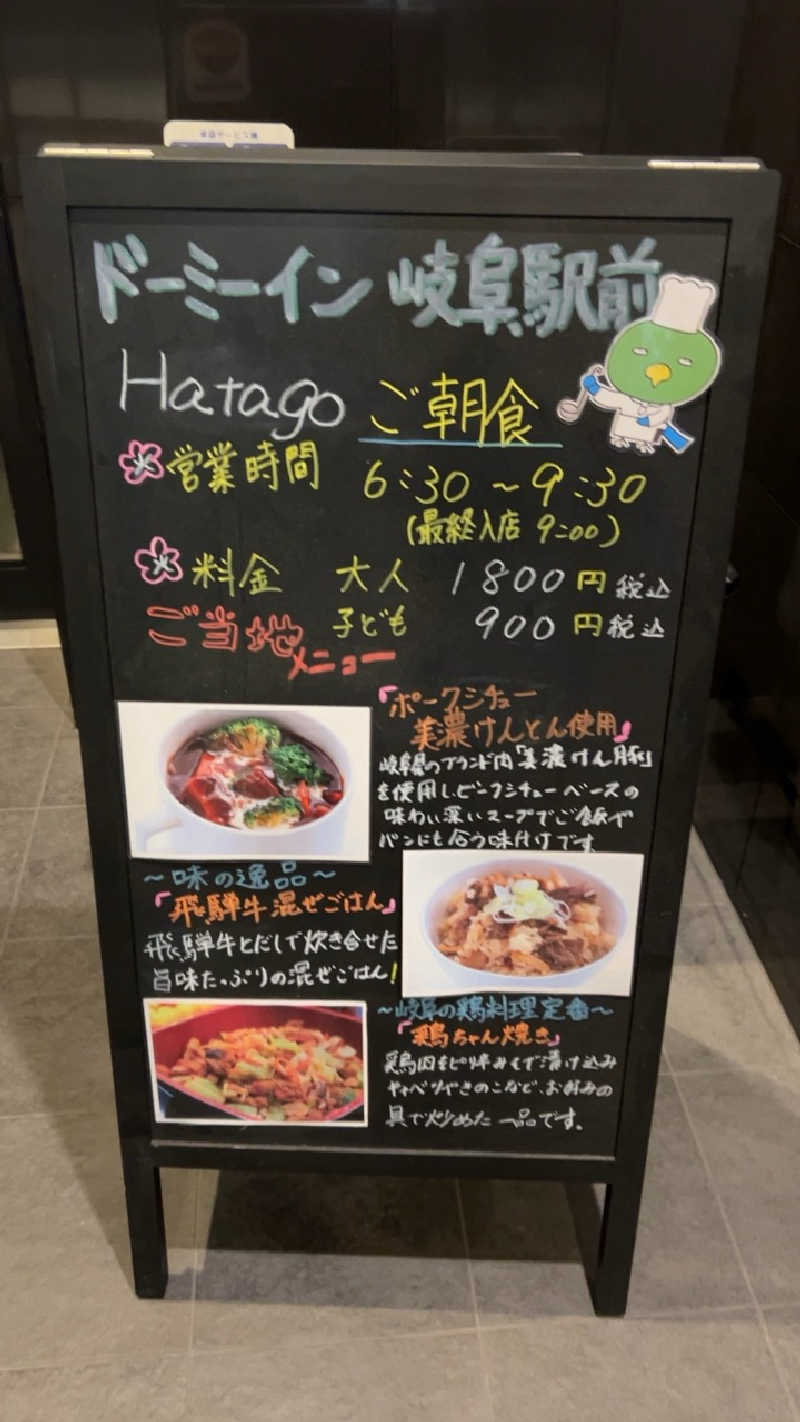 ドーミーイン 岐阜駅前
Hatago ご朝食
営業時間 6:30 ～ 9:30
(最終入店 9:00)
料金 大人 1800円 税込
子ども 900円 税込
ご当地メニュー
『ポークシチュー
美濃けんとん使用』
岐阜県のブランド肉「美濃けん豚」
を使用しビーフシチューベースの
味わい深いスープでご飯や
パンにも合う味付けです。
～味の逸品～
『飛騨牛混ぜごはん』
飛騨牛とだしで炊き合せた
旨味たっぷりの混ぜごはん!
～岐阜の鶏料理定番～
『鶏ちゃん焼き』
鶏肉をピリ辛みそで漬け込み
キャベツやきのこなど、お好みの
具で炒めた一品です。